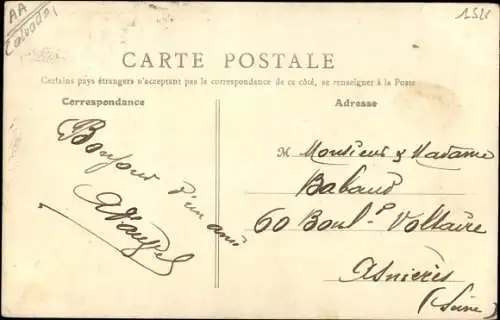 AA
Calvados
CARTE POSTALE
Certains pays étrangers n'acceptant pas la correspondance de ce côté, se renseigner à la Poste
Correspondance
Bonjour d'un ami
Adresse
M Monsieur & Madame
Babaud
60 Boul.d Voltaire
Asnières
(Seine)